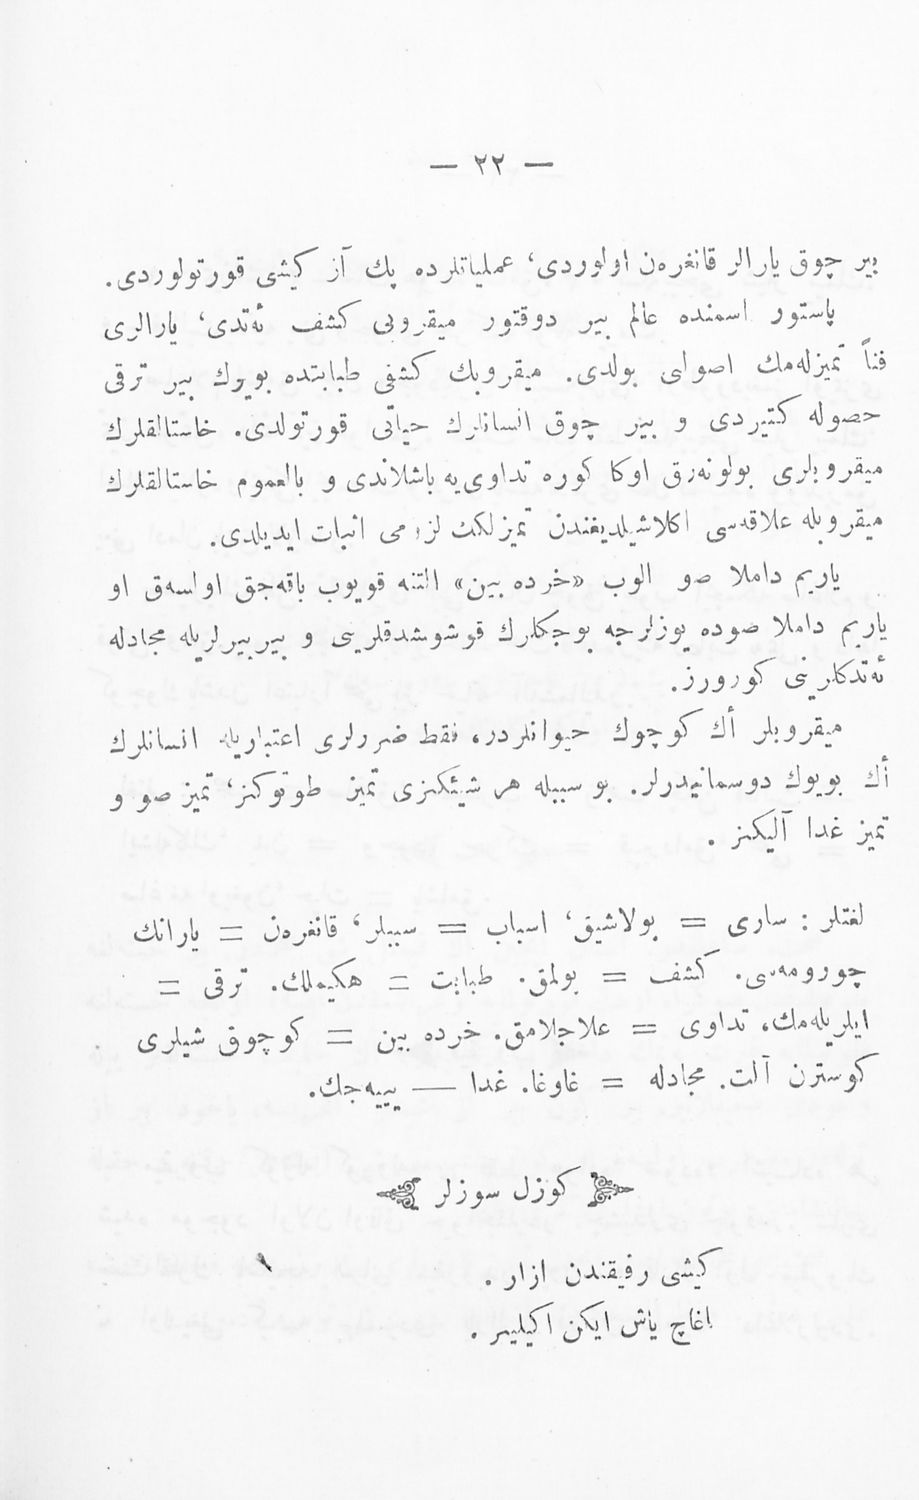 — ٢٢ —
بير چوق يارالر قانغرەن اولوردی، عملياتلرده پك آز كيشی قورتولوردی.
پاستور اسمنده عالم بير دوقتور ميقروبی كشف ئەتدی، يارالری
فناً تميزلەمك اصولی بولدی. ميقروبك كشفی طبابتده بويوك بير ترقی
حصوله كتيردی و بير چوق انسانلرك حياتی قورتولدی. خاستالقلرك
ميقروبلری بولونەرق اوكا كوره تداوی‌يه باشلاندی و بالعموم خاستالقلرك
ميقروبله علاقەسی اكلاشيلديغندن تميزلكك لزومی اثبات ايديلدی.
ياريم داملا صو الوب «خرده بين» التنه قويوب باقەجق اولسەق او
ياريم داملا صوده يوزلرجه بوجكلرك قوشوشدقلرينی و بيربيرلريله مجادله
ئەتدكلرينی كورورز.
ميقروبلر أك كوچوك حيوانلردر، فقط ضررلری اعتباريله انسانلرك
أك بويوك دوسمانيدرلر. بو سببله هر شيئكزی تميز طوتوكز، تميز صو و
تميز غدا آليكز .
لغتلر : ساری = بولاشيق، اسباب = سببلر، قانغرەن = يارانك
چورومەسی. كشف = بولمق. طبابت = هكيملك. ترقی =
ايلريلەمك، تداوی = علاجلامق. خرده بين = كوچوق شيلری
كوسترن آلت. مجادله = غاوغا. غدا — يييەجك.
كوزل سوزلر
كيشی رفيقندن ازار .
اغاچ ياش ايكن اكيلير .